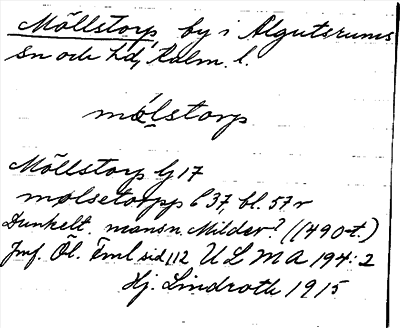 Möllstorp, by i Algutsrums
sn och hd, Kalm. l.
mølstorp
Möllstorp G 17
molsetorpp C 37, bl. 57 r
Dunkelt. mansn. Milder? (1490-t.)
Jmf. Öl. Fml sid 112 ULMA 194:2
Hj. Lindroth 1915